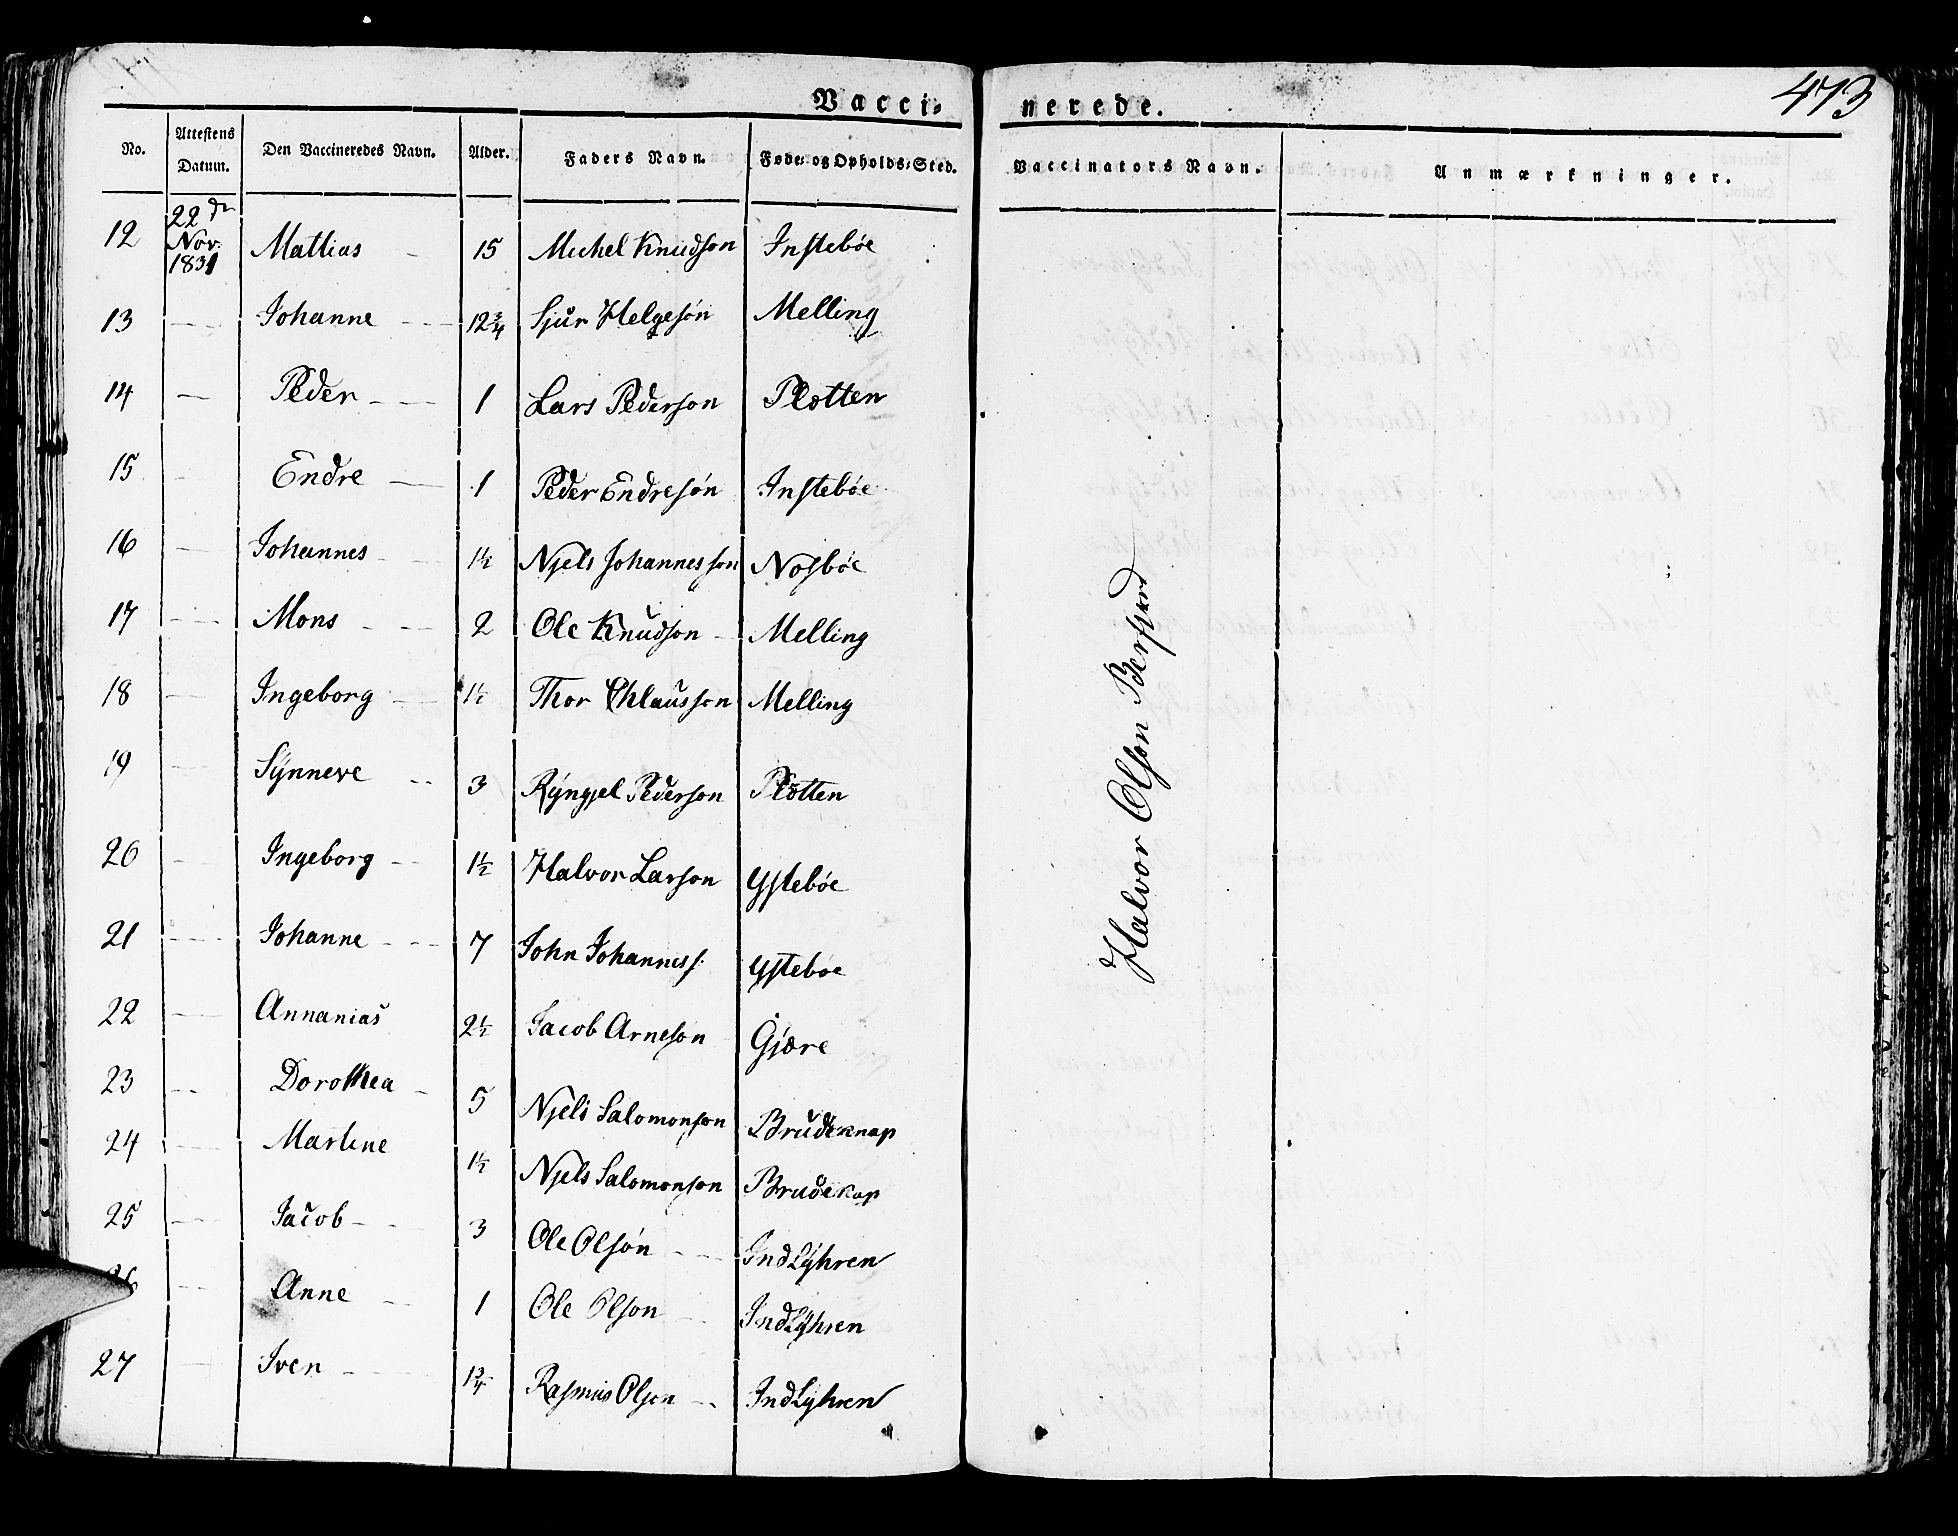 473
Vacci- nerede.
No. Attestens Datum. Den Vaccineredes Navn. Alder. Faders Navn. Føde- og Opholds-Sted. Vaccinators Navn. Anmærkninger.
12 22de Nov. 1831 Mattias - 15 Michel Knudson Instebøe
13 - Johanne - 12 3/4 Sjur Helgesøn Melling
14 - Peder - 1 Lars Pederson Plotten
15 - Endre - 1 Peder Endresøn Instebøe
16 - Johannes - 1 1/2 Njels Johannesson Nosbøe
17 - Mons - 2 Ole Knudson - Melling
18 - Ingeborg - 1 1/2 Thor Chlausson Melling
19 - Synneve - 3 Ryngjel Pederson Plotten
20 - Ingeborg - 1 1/2 Halvor Larson Ystebøe
21 - Johanne - 7 John Johanness. Ystebøe
22 - Annanias 2 1/2 Jacob Arneson Gjøre
23 - Dorothea - 5 Njels Salomonson Brudeknap
24 - Martene 1 1/2 Njels Salomonson Brudekap
25 - Jacob - 3 Ole Olsøn - IndLyhren
26 - Anne - 1 Ole Olson - IndLyhren
27 - Sven - 1 3/4 Rasmus Olson - IndLyhren
Halvor Olson Berfjord